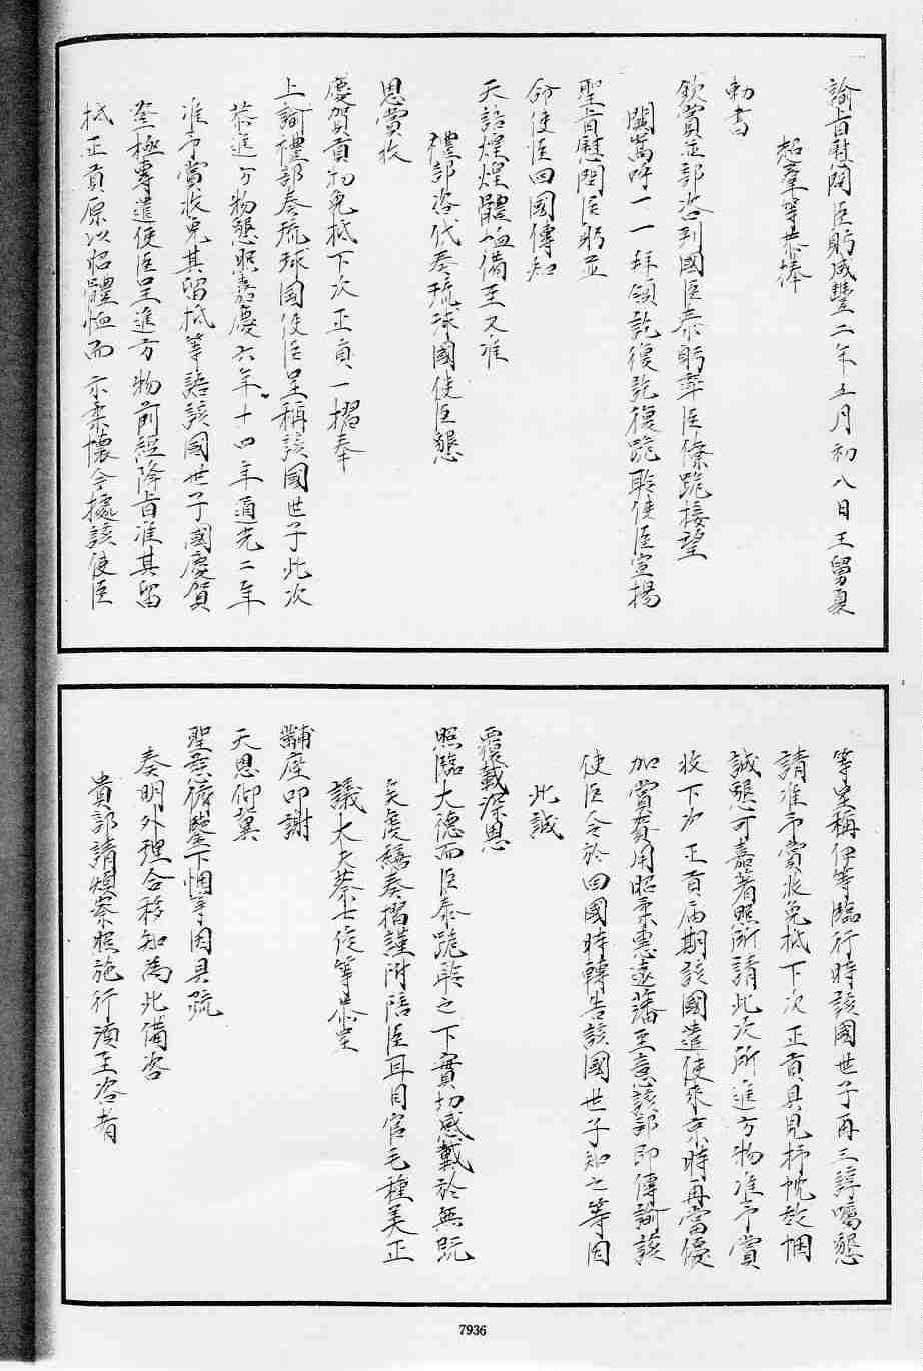 諭旨慰問臣躬咸豐二年五月初八日王舅夏
超羣等恭捧
勅書
欽賞並部咨到國臣泰躬率臣僚跪接望
闕嵩呼一一拜領訖復跪聆使臣宣揚
聖旨慰問臣躬並
命使臣回國傳知
天語煌煌體恤備至又准
禮部咨代奏琉球國使臣懇
恩賞收
慶賀貢物免抵下次正貢一摺奉
上諭禮部奏琉球國使臣呈稱該國世子此次
恭進方物懇照嘉慶六年十四年道光二年
准予賞收免其留抵等語該國世子國慶賀
登極專遣使臣呈進方物前經降旨准其留
抵正貢原以昭體恤而示柔懷今據該使臣
等呈稱伊等臨行時該國世子再三諄囑懇
請准予賞收免抵下次正貢具見抒忱故悃
誠懇可嘉著照所請此次所進方物准予賞
收下次正貢屆期該國遣使來京時再當優
加賞賚用昭柔惠遠藩至意該部即傳諭該
使臣令於回國時轉告該國世子知之等因
此誠
覆載深恩
照臨大德而臣泰跪聆之下實切感戴於無既
矣虔繕奏摺謹附陪臣耳目官毛種美正
議大夫蔡士俊等恭呈
黼座叩謝
天恩仰冀
聖慈俯鑒下悃等因具疏
奏明外理合移知為此備咨
貴部請煩察照施行須至咨者
7936